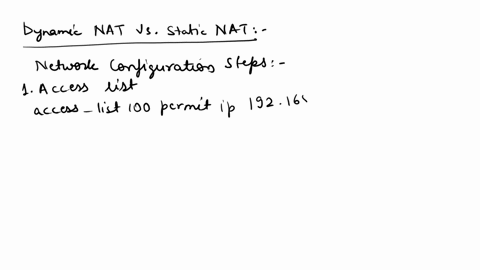 Dynamic NAT Vs. Static NAT:-
Network Configuration Steps:-
1. Access list
access_list 100 permit ip 192.168